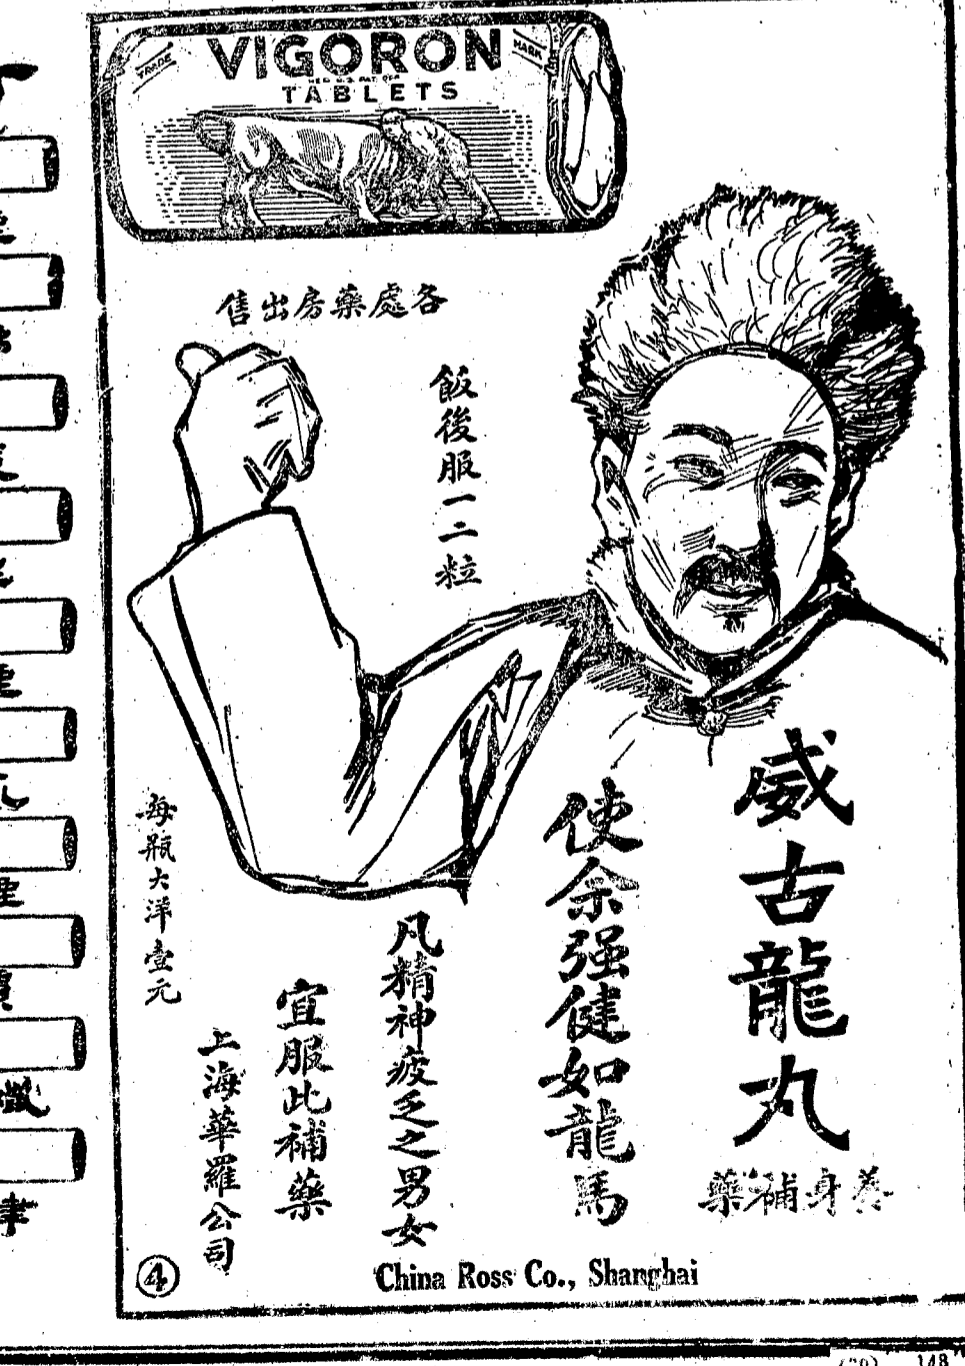 TRADE
VIGORON
MARK
REG. U.S. PAT. OFF.
TABLETS
各處藥房出售
飯後服一二粒
威古龍丸
養身補藥
使余强健如龍馬
凡精神疲乏之男女
宜服此補藥
上海華羅公司
每瓶大洋壹元
④
China Ross Co., Shanghai
148